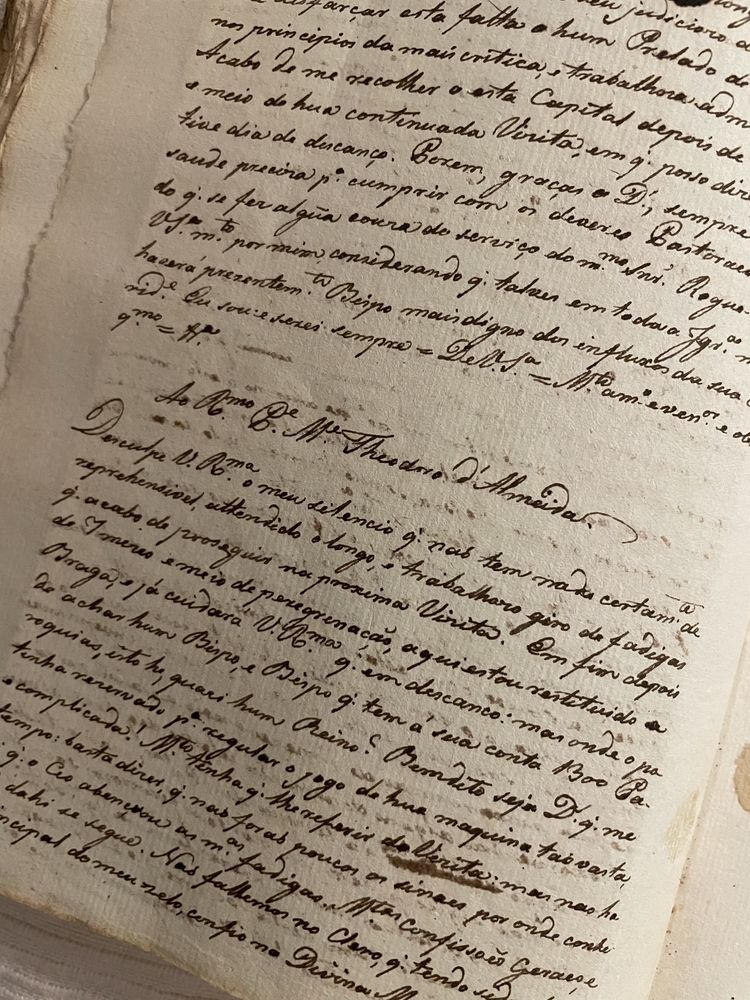 disfarçar esta falta a hum Prelado de
nos principios da mais critica, e trabalhoza adm
Acabo de me recolher a esta Capital depois de
e meio de hua continuada Vizita, em q̃ posso dizer
tive dia de descanço. Porem, graças a D.ˢ, sempre
saude preciza p.ᵃ cumprir com os deveres Pastoraes
do q̃ se fez algũa couza do serviço do m.ᵐᵒ Snr. Rogue
V.S.ᵃ m.ᵗᵒ por mim, considerando q̃ talvez em toda a Igr.ᵃ
haverá prezentem.ᵗᵉ Bispo mais digno dos influxos da sua
rid.ᵉ Eu sou e serei sempre = De V.S.ᵃ = M.ᵗᵒ am.ᵒ e ven.ᵒʳ e ob
g.ᵐᵒ = A.ᵉ
Ao R.ᵐᵒ P.ᵉ M.ᵉ Theodoro d'Almeida
Desculpe V. R.ᵐᵃ o meu silencio q̃ nas tem nada certam.ᵗᵉ de
reprehensivel, attendido o longo, e trabalhozo giro de fadigas
q̃ acabo de proseguir na proxima Vizita. Em fim depois
de 7 mezes e meio de peregrenação, aqui estou restituido a
Braga, e já cuidará V. R.ᵐᵃ q̃ em descanco: mas onde o po
de achar hum Bispo, e Bispo q̃ tem á sua conta 1300 Pa-
roquias, isto he, quazi hum Reino? Bemdito seja D.ˢ q̃ me
tenha rezervado p.ᵃ regular o jogo de hua maquina tao vasta,
e complicada! M.ᵗᵒ tenha q̃ lhe referir da Vizita: mas nao ha
tempo: basta dizer, q̃ nas foras poucos os sinaes por onde conhe
q̃ o Ceo abençoou as m.ᵃˢ fadigas. M.ᵗᵃˢ confissões Geraes, e
dahi se segue. Nas fallemos no Clero, q̃ tendo sed
ncipal do meu zelo, confio na Divina M